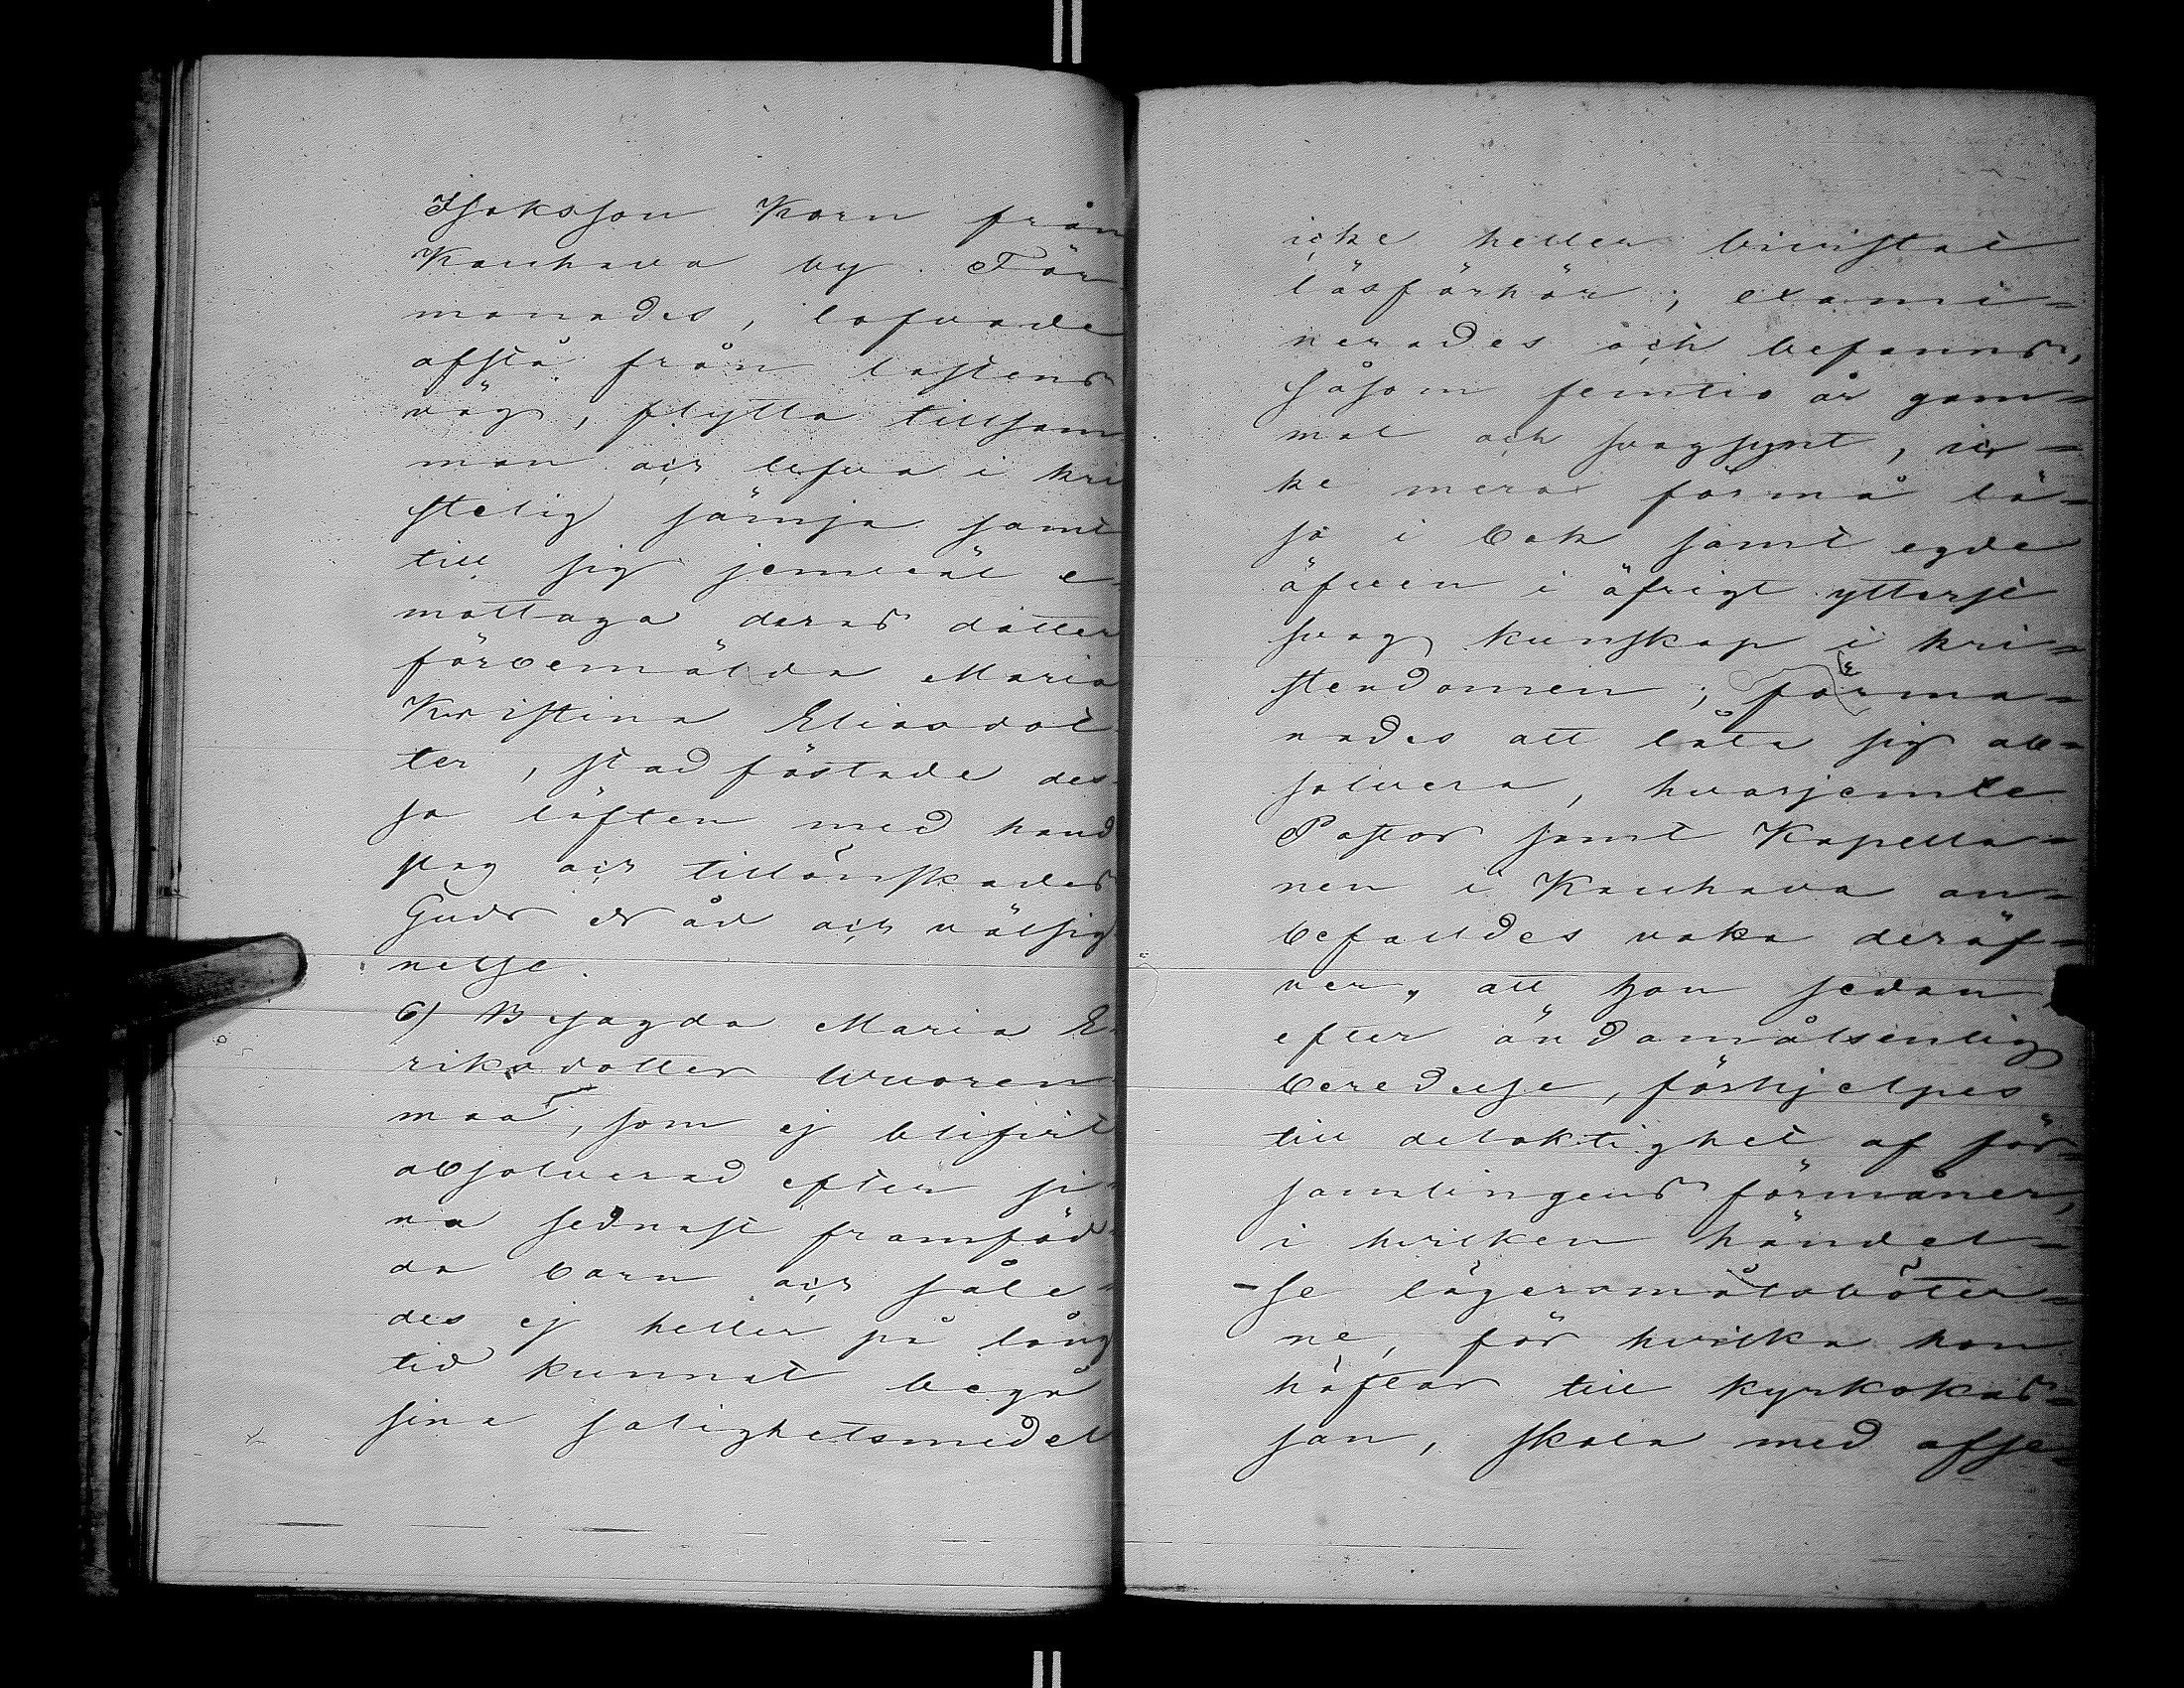 Isaksson Korn från
Kauhava by. För
manades, lofvade
afstå från lastens
väg, flytta tillsam
man och lefva i kri
stelig sämja samt
till sig jemväl e-
mottaga deras dotter
förbemälda Maria
Kristina Eliasdot
ter, stadfästade des-
sa löften med hand
slag och tillönskades
Guds nåd och välsig
nelse.
6) Besagda Maria E-
riksdotter Wuoren
maa, som ej blifvit
absolverad efter si-
na sednast framföd-
da barn och såle-
des ej heller på lång
tid kunnat begå
sina salighetsmedel
icke heller bivistat
läsförhör; exami=
nerades och befanns,
såsom femtio år gam=
mal och svagsynt, ic=
ke mera förmå lä=
sa i bok samt egde
äfven i öfrigt ytterst
svag kunskap i kri=
stendomen; förma=
nades att låta sig ab=
solvera, hvarjemte
Pastor samt Kapella=
nen i Kauhava an=
befalldes vaka deröf=
ver, att hon sedan
efter ändamålsenlig
beredelse, förhjelpes
till delaktighet af för=
samlingens förmåner,
i hvilken händel=
-se lägersmålsböter=
ne, för hvilka hon
häftar till kyrkokas=
san, skola med afse=